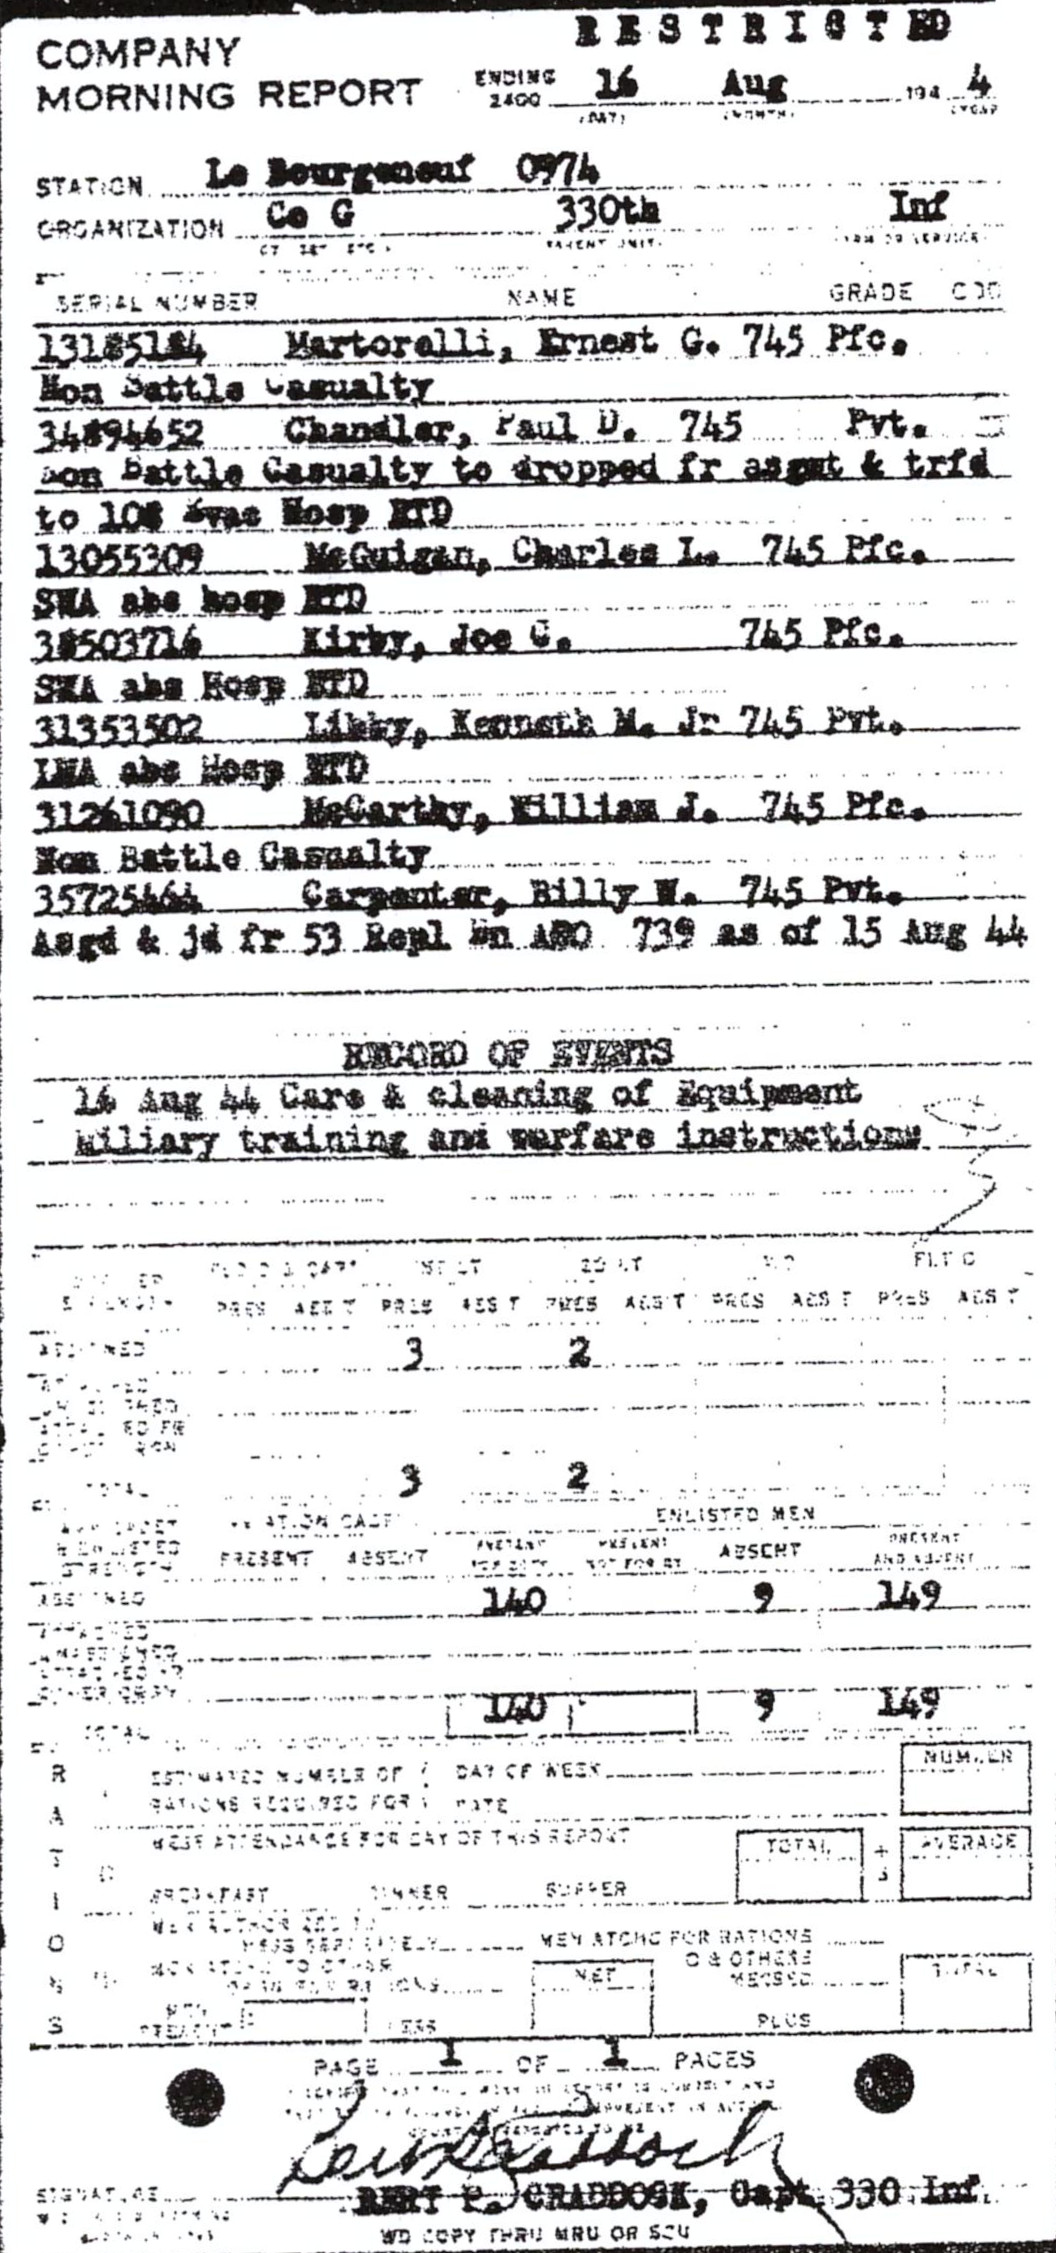 RESTRICTED
COMPANY
MORNING REPORT ENDING 2400 16 Aug 194 4
(DAY) (MONTH) (YEAR)
STATION Le Bourgeneuf 0974
ORGANIZATION Co G 330th Inf
SERIAL NUMBER NAME GRADE
13185184 Martorelli, Ernest G. 745 Pfc.
Non Battle Casualty
34894652 Chandler, Paul D. 745 Pvt.
Non Battle Casualty to dropped fr asgmt & trfd
to 108 Evac Hosp ETD
13055309 McGuigan, Charles L. 745 Pfc.
SWA abs hosp ETD
38503716 Kirby, Joe C. 745 Pfc.
SWA abs Hosp ETD
31353502 Libby, Kenneth M. Jr 745 Pvt.
LWA abs Hosp ETD
31261090 McCarthy, William J. 745 Pfc.
Non Battle Casualty
35725464 Carpenter, Billy W. 745 Pvt.
Asgd & jd fr 53 Repl Bn APO 739 as of 15 Aug 44
RECORD OF EVENTS
16 Aug 44 Care & cleaning of Equipment
Miliary training and warfare instructions
1ST LT 2D LT
PRES ABS'T PRES ABS'T PRES ABS'T PRES ABS'T PRES ABS'T
3 2
TOTAL 3 2
ENLISTED MEN
PRESENT ABSENT PRESENT FOR DUTY PRESENT NOT FOR DY ABSENT PRESENT AND ABSENT
140 9 149
TOTAL 140 9 149
RATIONS
ESTIMATED NUMBER OF DAY OF WEEK NUMBER
RATIONS REQUIRED FOR DATE
MESS ATTENDANCE FOR DAY OF THIS REPORT TOTAL AVERAGE
BREAKFAST DINNER SUPPER
MESS SEPARATELY MEN ATCHD FOR RATIONS
& OTHERS MESSED NET TOTAL
MEN PRESENT LESS PLUS
PAGE 1 OF 1 PAGES
SIGNATURE BERT P. CRADDOCK, Capt 330 Inf.
WD COPY THRU MRU OR SCU